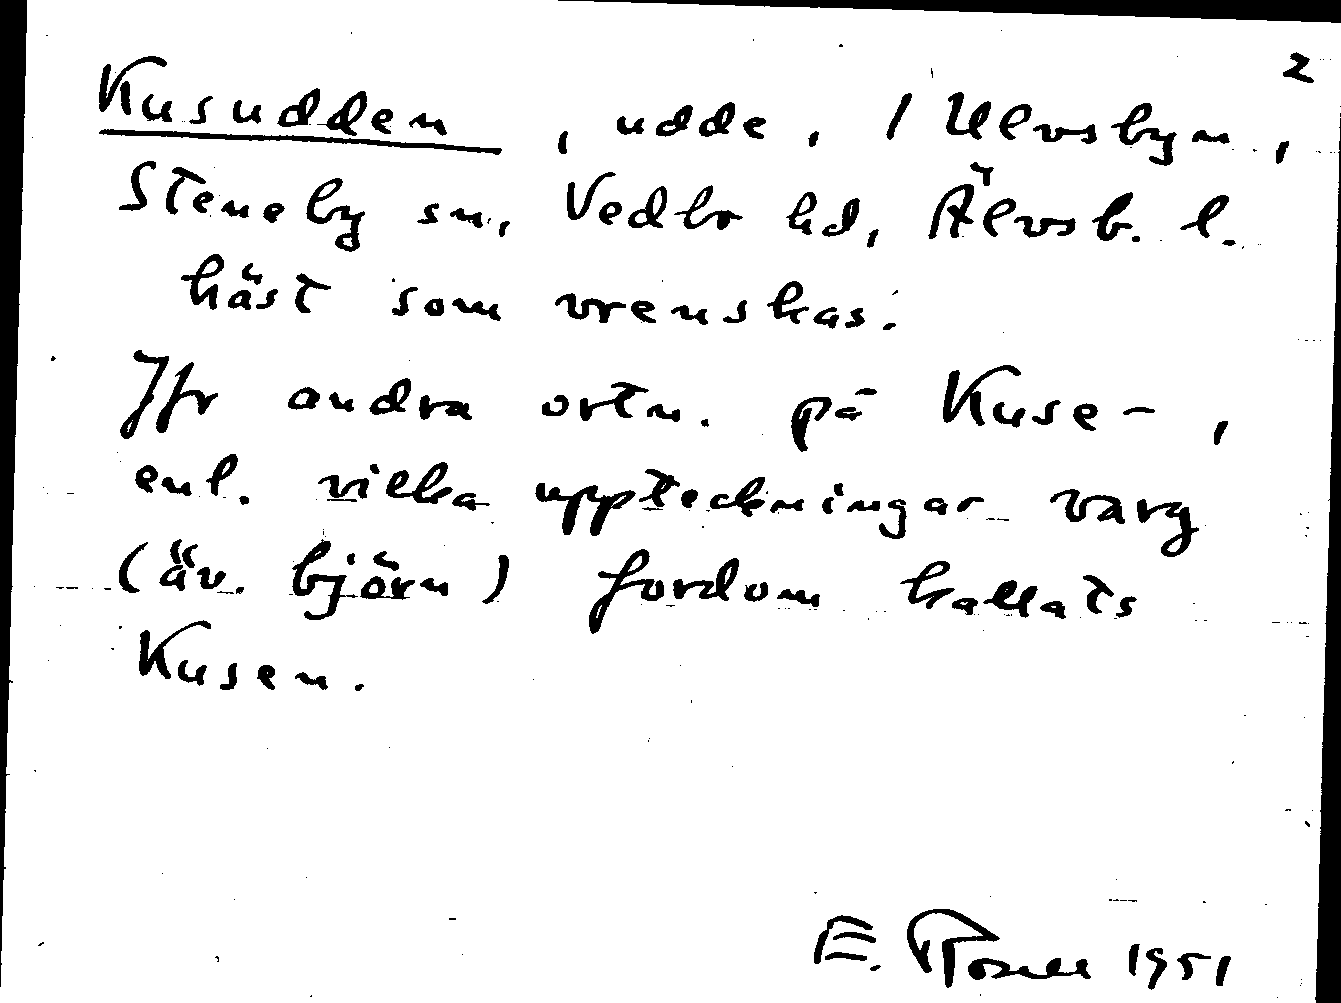 2
Kusudden, udde, / Ulvsbyn,
Steneby sn, Vedbo hd, Älvsb. l.
häst som vrenskas.
Jfr andra ortn. på Kuse-,
enl. vilka uppteckningar varg
(äv. björn) fordom kallats
Kusen.
E. Rosell 1951